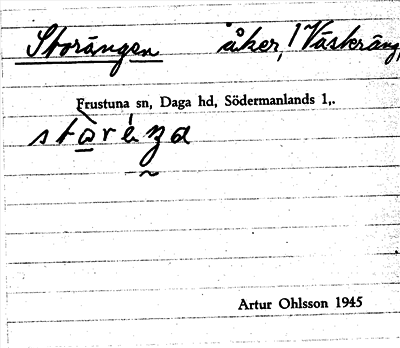 Storängen åker, 1 Västeräng,
Frustuna sn, Daga hd, Södermanlands 1,.
Artur Ohlsson 1945